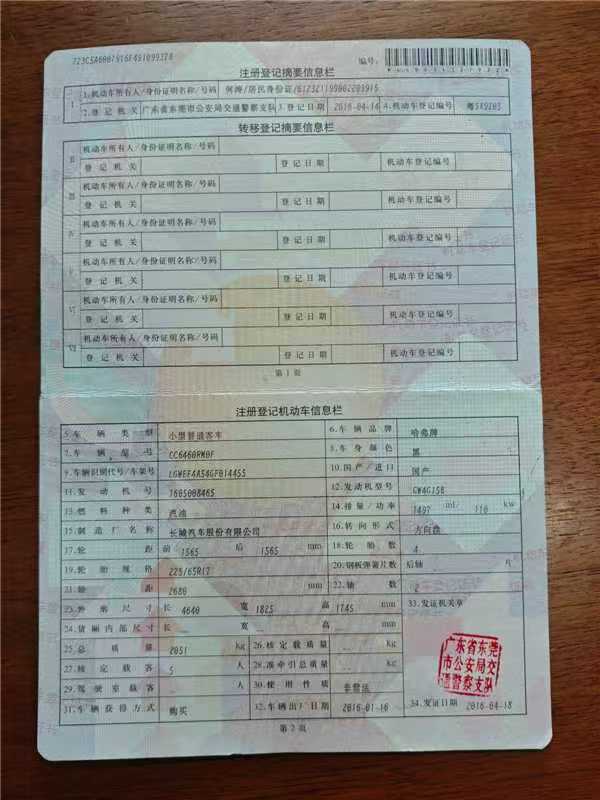 编号:
注册登记摘要信息栏
I 1.机动车所有人/身份证明名称/号码 何涛/居民身份证/612321199002203915
2.登记机关 广东省东莞市公安局交通警察支队 3.登记日期 2016-04-14 4.机动车登记编号
转移登记摘要信息栏
II 机动车所有人/身份证明名称/号码
登记机关 登记日期 机动车登记编号
III 机动车所有人/身份证明名称/号码
登记机关 登记日期 机动车登记编号
IV 机动车所有人/身份证明名称/号码
登记机关 登记日期 机动车登记编号
V 机动车所有人/身份证明名称/号码
登记机关 登记日期 机动车登记编号
VI 机动车所有人/身份证明名称/号码
登记机关 登记日期 机动车登记编号
VII 机动车所有人/身份证明名称/号码
登记机关 登记日期 机动车登记编号
第1页
注册登记机动车信息栏
5.车辆类型 小型普通客车 6.车辆品牌 哈弗牌
7.车辆型号 CC6460RM0F 8.车身颜色 黑
9.车辆识别代号/车架号 LGWEF4A54GF014455 10.国产/进口 国产
11.发动机号 1605008465 12.发动机型号 GW4G15B
13.燃料种类 汽油 14.排量/功率 1497 ml/ 110 kw
15.制造厂名称 长城汽车股份有限公司 16.转向形式 方向盘
17.轮距 前 1565 后 1565 mm 18.轮胎数 4
19.轮胎规格 225/65R17 20.钢板弹簧片数 后轴 片
21.轴距 2680 mm 22.轴数 2
23.外廓尺寸 长 4640 宽 1825 高 1745 mm 33.发证机关章
24.货厢内部尺寸 长 宽 高 mm
25.总质量 2051 kg 26.核定载质量 kg
27.核定载客 5 人 28.准牵引总质量 kg
29.驾驶室载客 人 30.使用性质 非营运
31.车辆获得方式 购买 32.车辆出厂日期 2016-01-16 34.发证日期 2016-04-18
广东省东莞
市公安局交
通警察支队
第2页